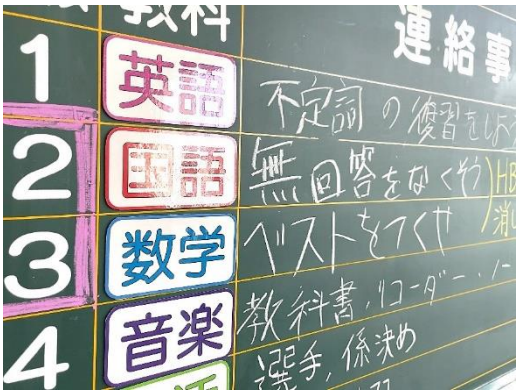 教科 連絡事
1 英語 不定詞の復習をしよう
2 国語 無回答をなくそう HB
3 数学 ベストをつくせ 消し
4 音楽 教科書、リコーダー・ノー
選手、係決め